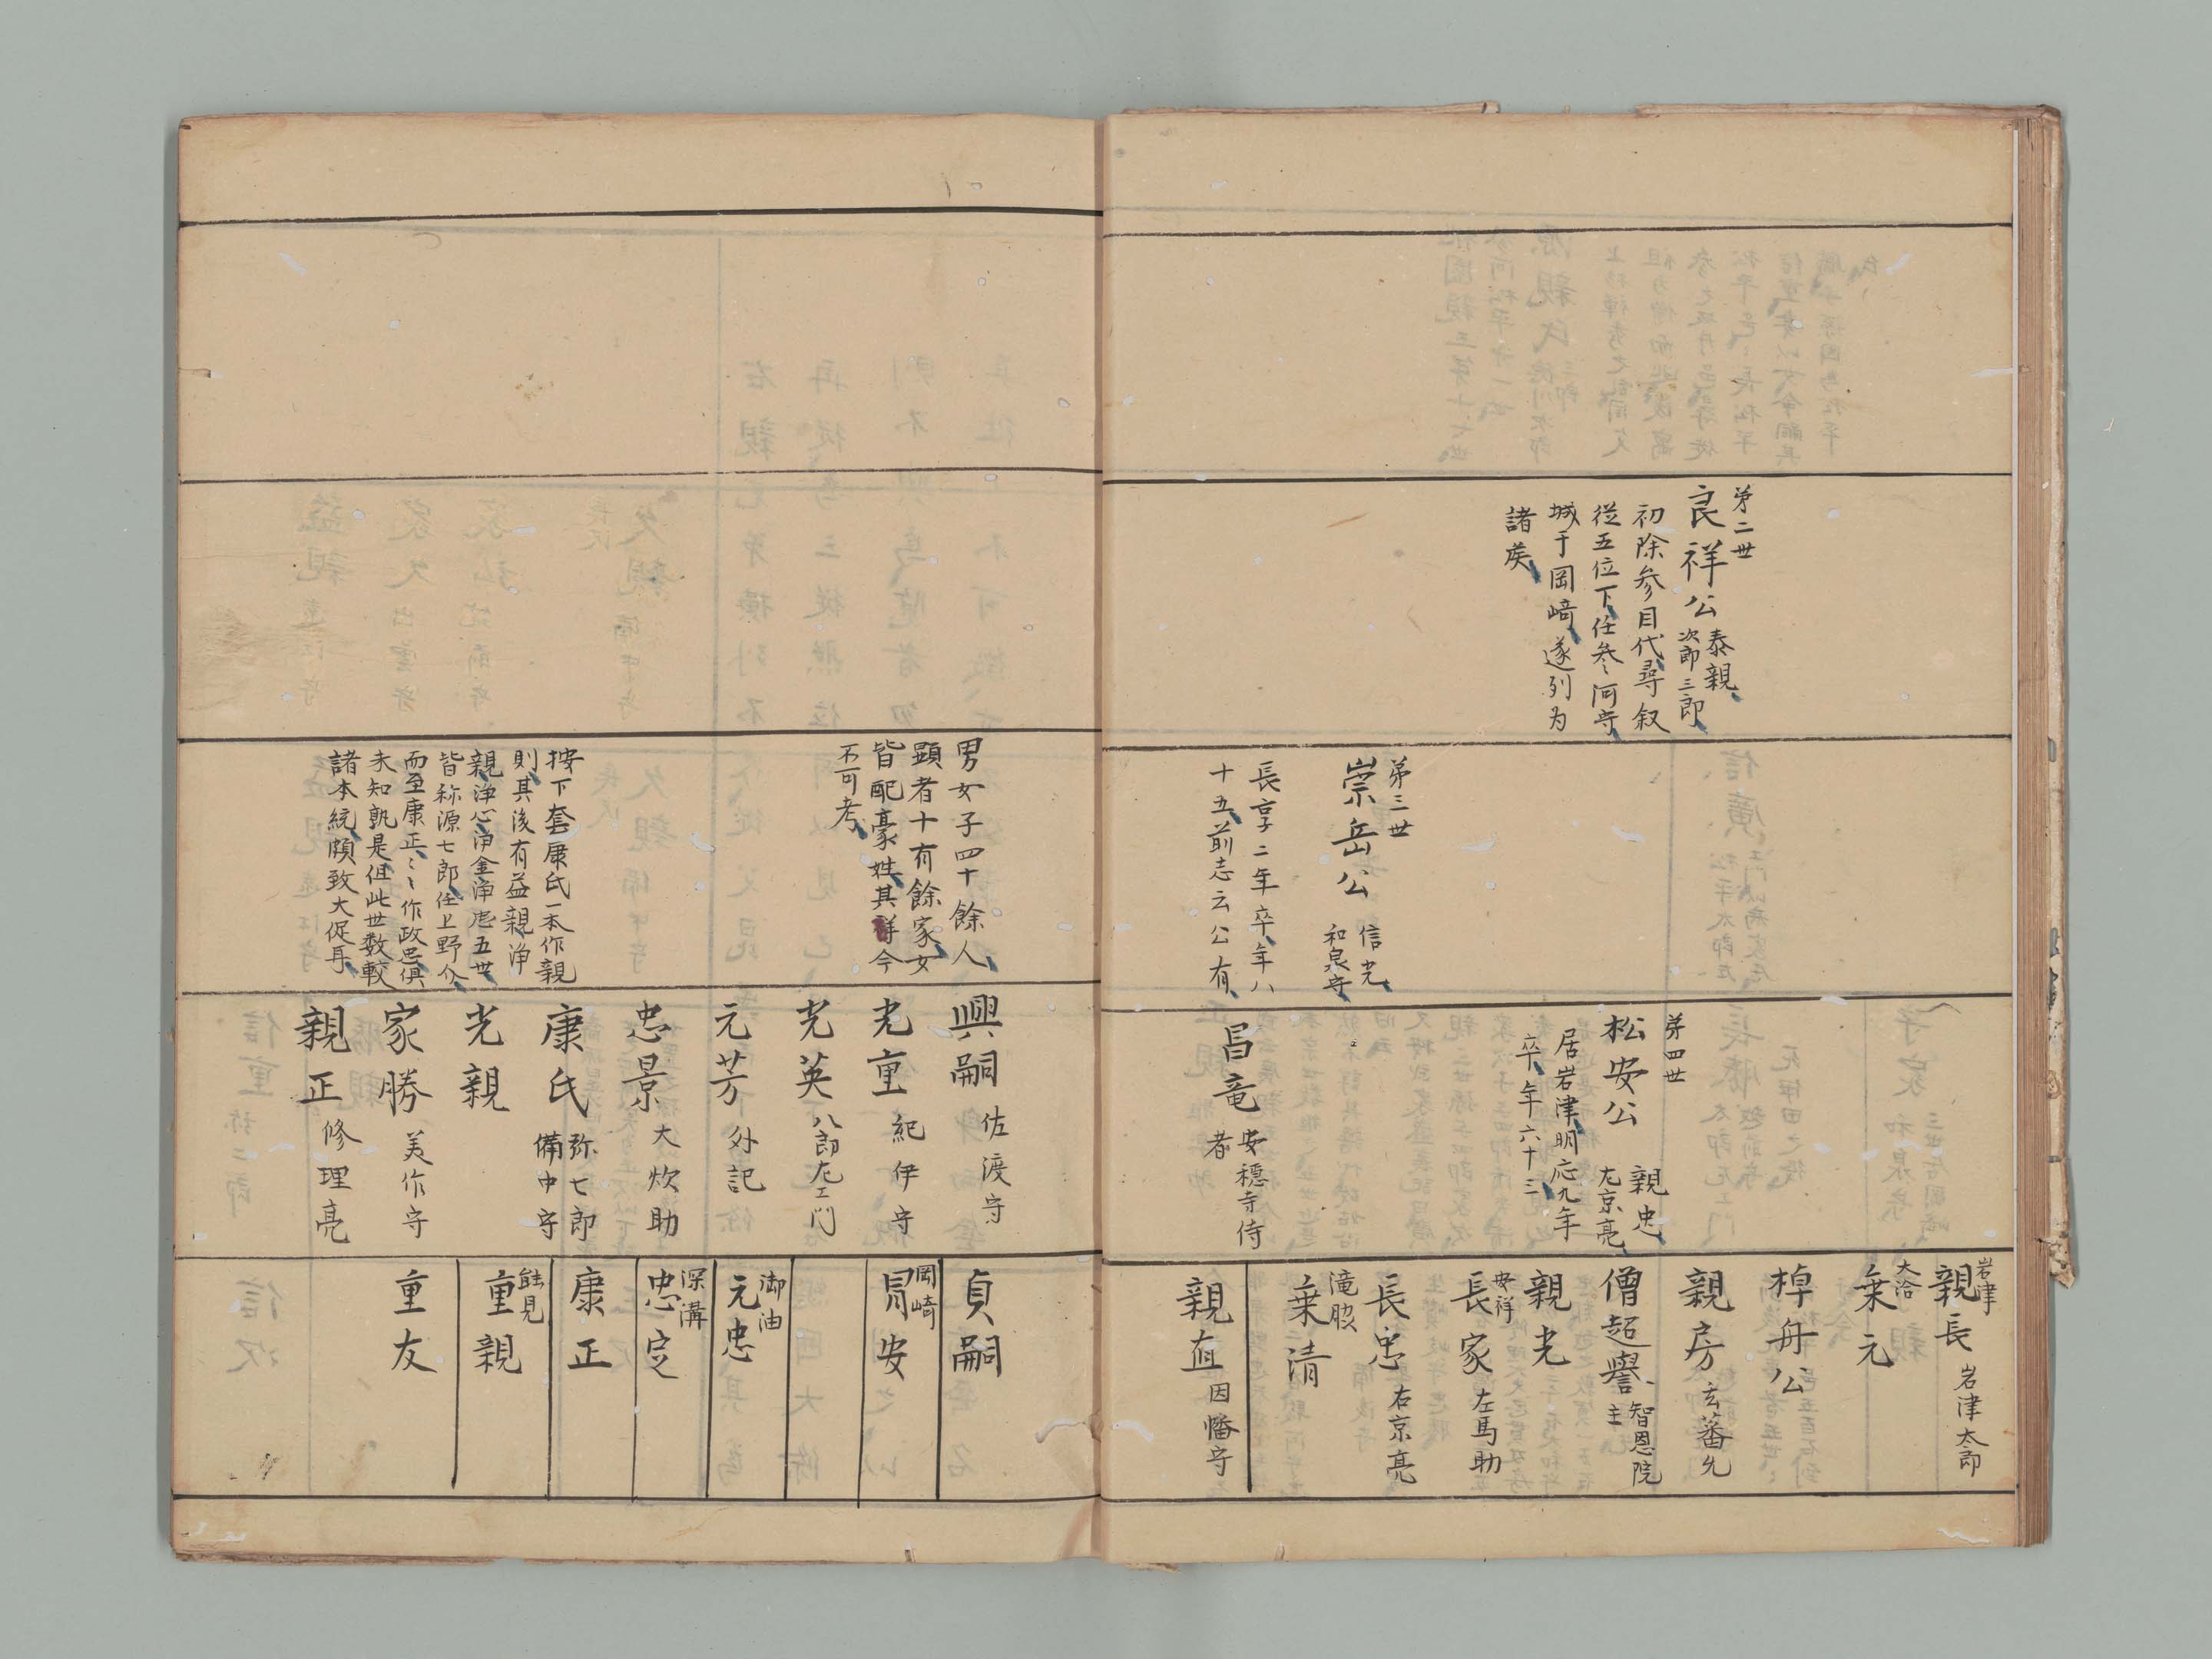 第二世
良祥公
泰親
次郎三郎
初除参目代尋叙
従五位下任参河守
城于岡崎遂列为
諸侯
第三世
崇岳公
信光
和泉守
長享二年卒年八
十五前志云公有
第四世
松安公
親忠
左京亮
居岩津明応九年
卒年六十三
昌竜
安穏寺侍
者
岩津
親長 岩津太郎
大治
乗元
棹舟公
親房 玄蕃允
僧超譽
智恩院
主
親光
安祥
長家 左馬助
長忠 右京亮
滝脇
乗清
親直 因幡守
男女子四十餘人
顕者十有餘家女
皆配豪姓其詳今
不可考
按下套康氏一本作親
則其後有益親浄
親浄心浄金浄感五世
皆称源七郎任上野介
而至康正〻作政忠俱
未知孰是但此世数較
諸本統頗致大促耳
興嗣 佐渡守
光重 紀伊守
光英 八郎左エ門
元芳 外記
忠景 大炊助
康氏
弥七郎
備中守
光親
家勝 美作守
親正 修理亮
貞嗣
岡崎
冐安
御油
元忠
深溝
忠定
康正
能見
重親
重友